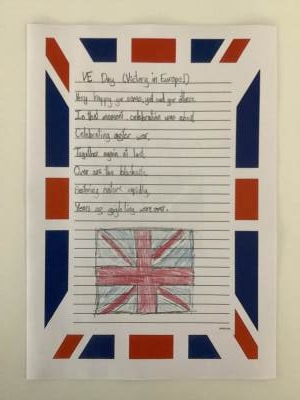 VE Day (Victory in Europe!)
Very happy for some, yet sad for others.
In that moment, celebration was
Celebrating after war,
Together again at last,
Over are the blackouts,
Restoring nature rapidly,
Years of fighting were over.